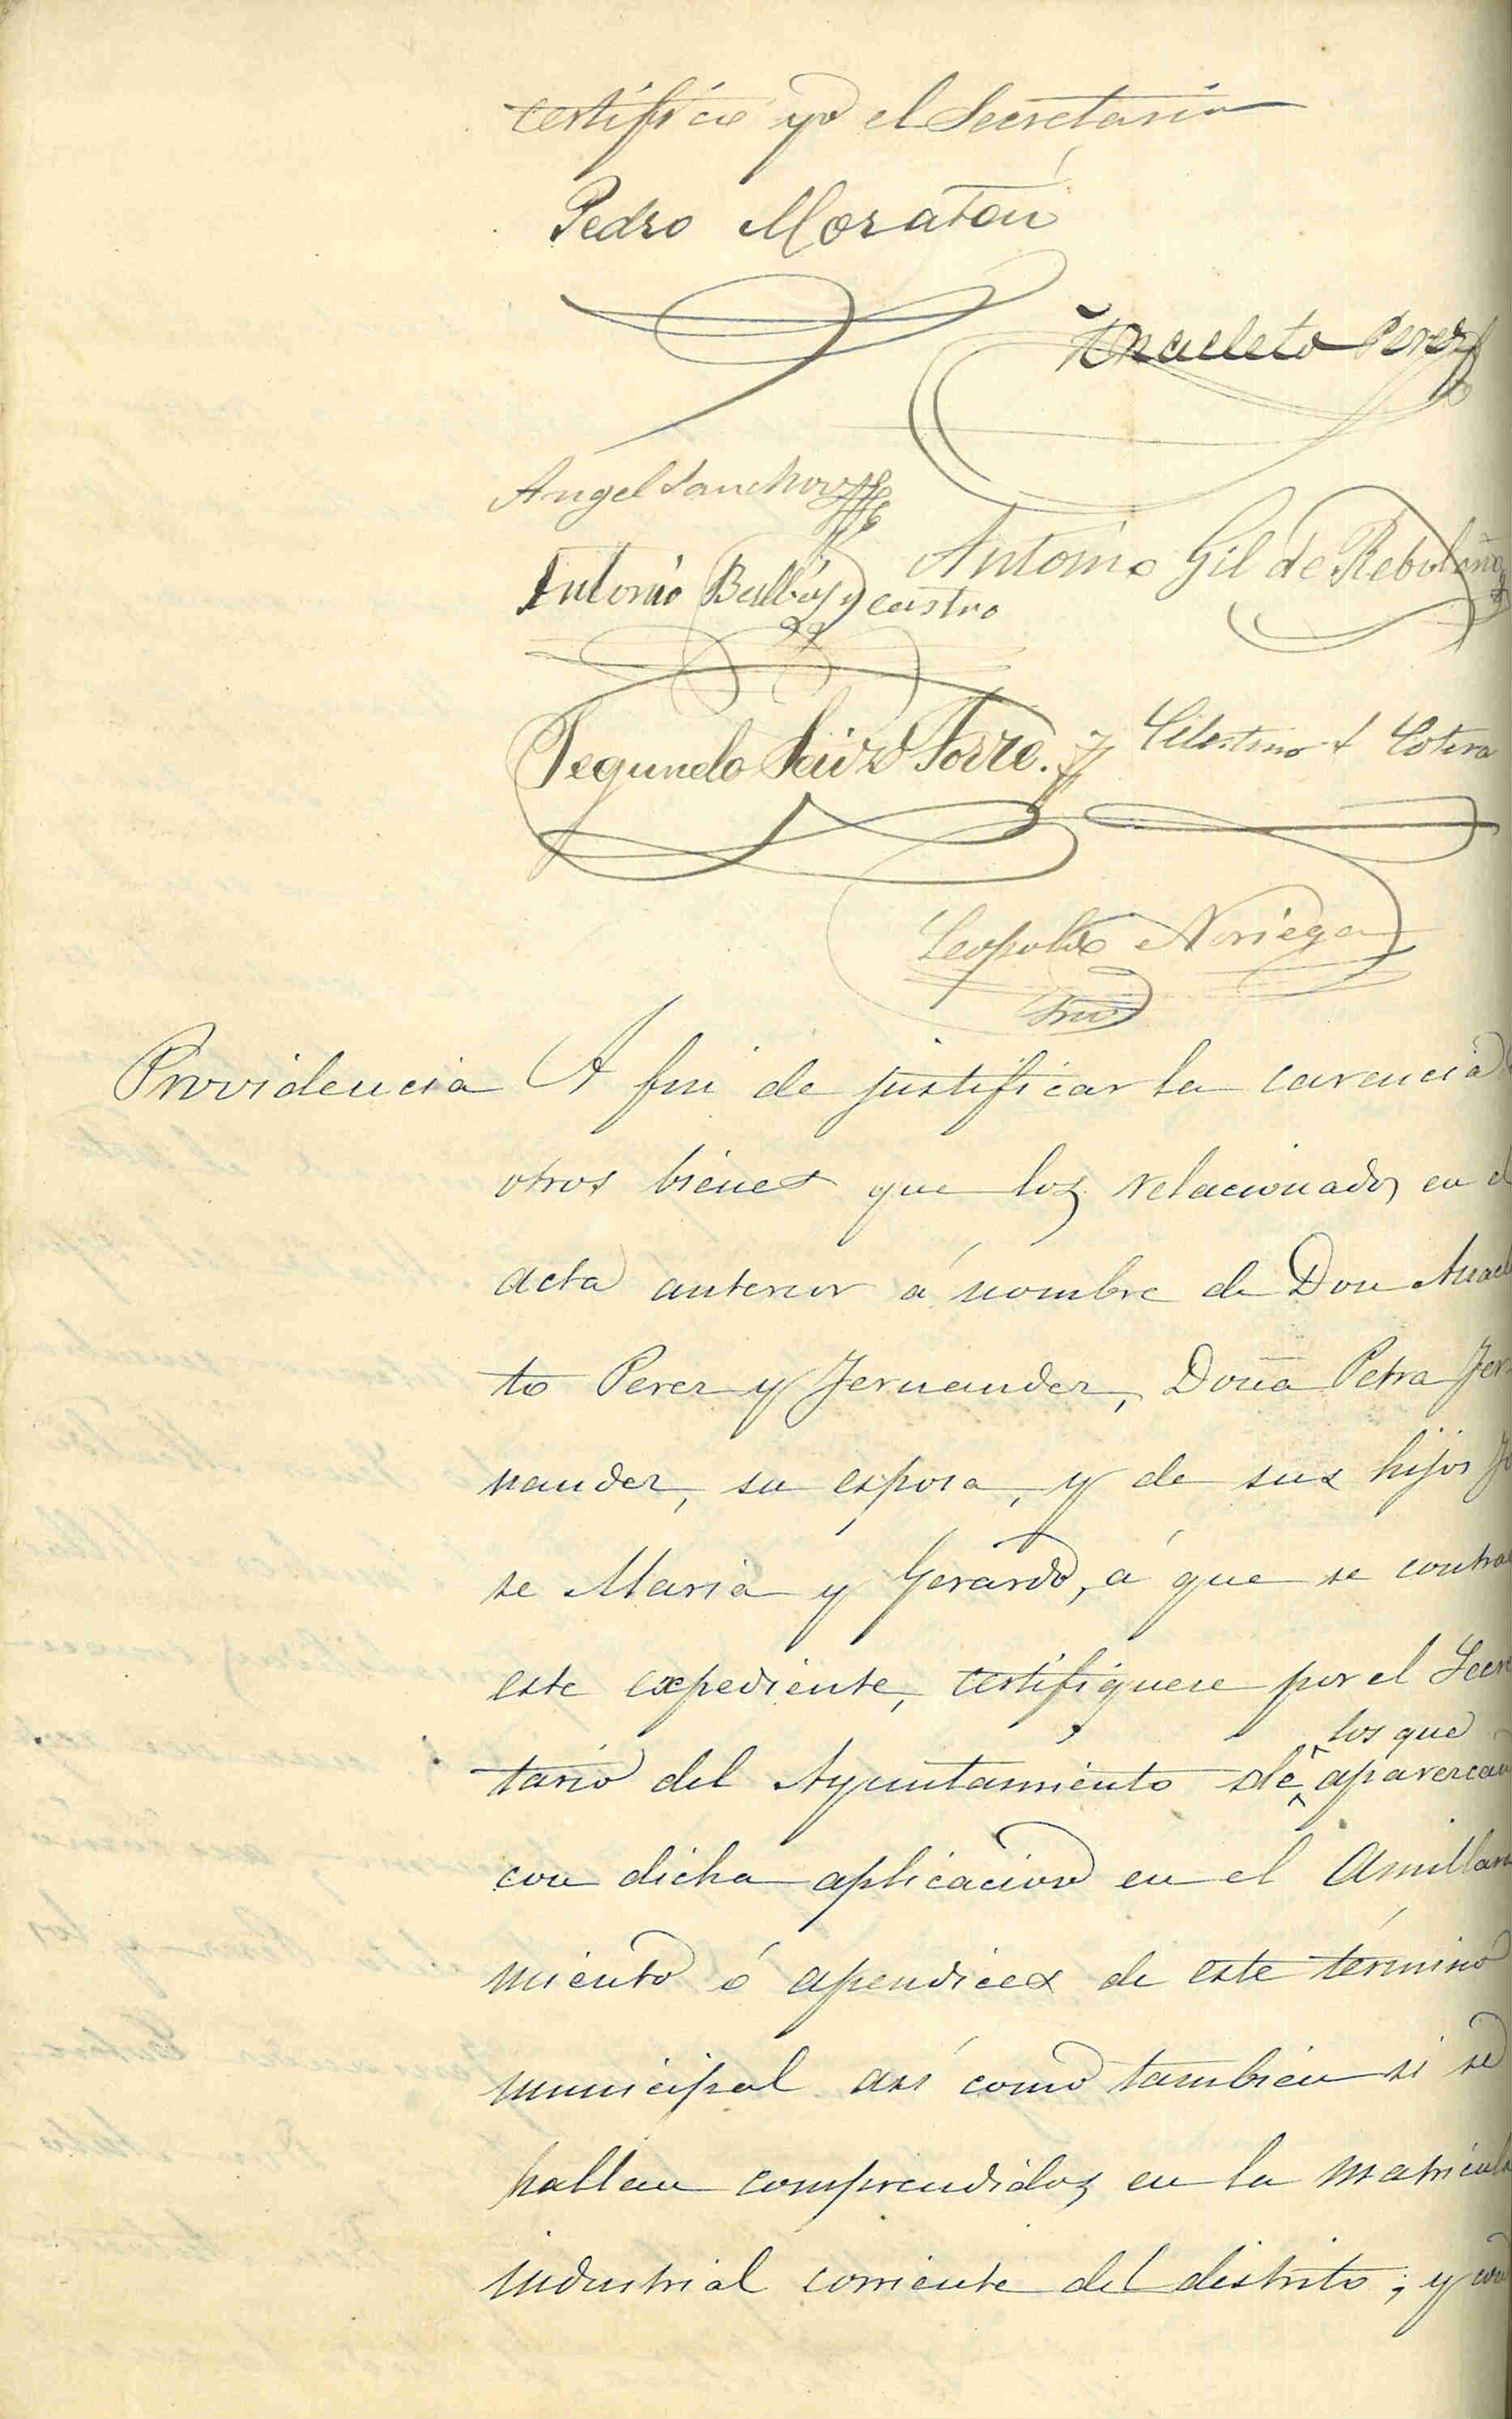 certifico yo el Secretario
Pedro Moraton
Anacleto Perez
Angel Sanchez
Antonio Gil de Reboleño
Antonio Balbás y castro
Segundo Sáiz Torre.
Celestino L Cotera
Leopoldo Noriega
Srio
Providencia A fin de justificar la carencia
otros bienes que los relacionados en el
acta anterior á nombre de Don Anacle
to Perez y Fernandez, Doña Petra Fer
nandez, su esposa, y de sus hijos Jo
se Maria y Gerardo, á que se contrae
este expediente, certifiquese por el Secre
los que
tario del Ayuntamiento de aparezcan
con dicha aplicacion en el Amillara
miento ó apendices de este término
municipal así como tambien si se
hallan comprendidos en la matricula
industrial corriente del distrito; y con